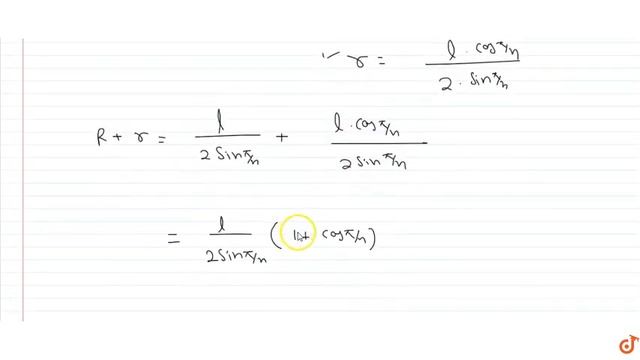 ✓ r = l · cos π/n / 2 · sin π/n
R + r = l / 2 sin π/n + l · cos π/n / 2 sin π/n
= l / 2 sin π/n ( 1 + cos π/n )